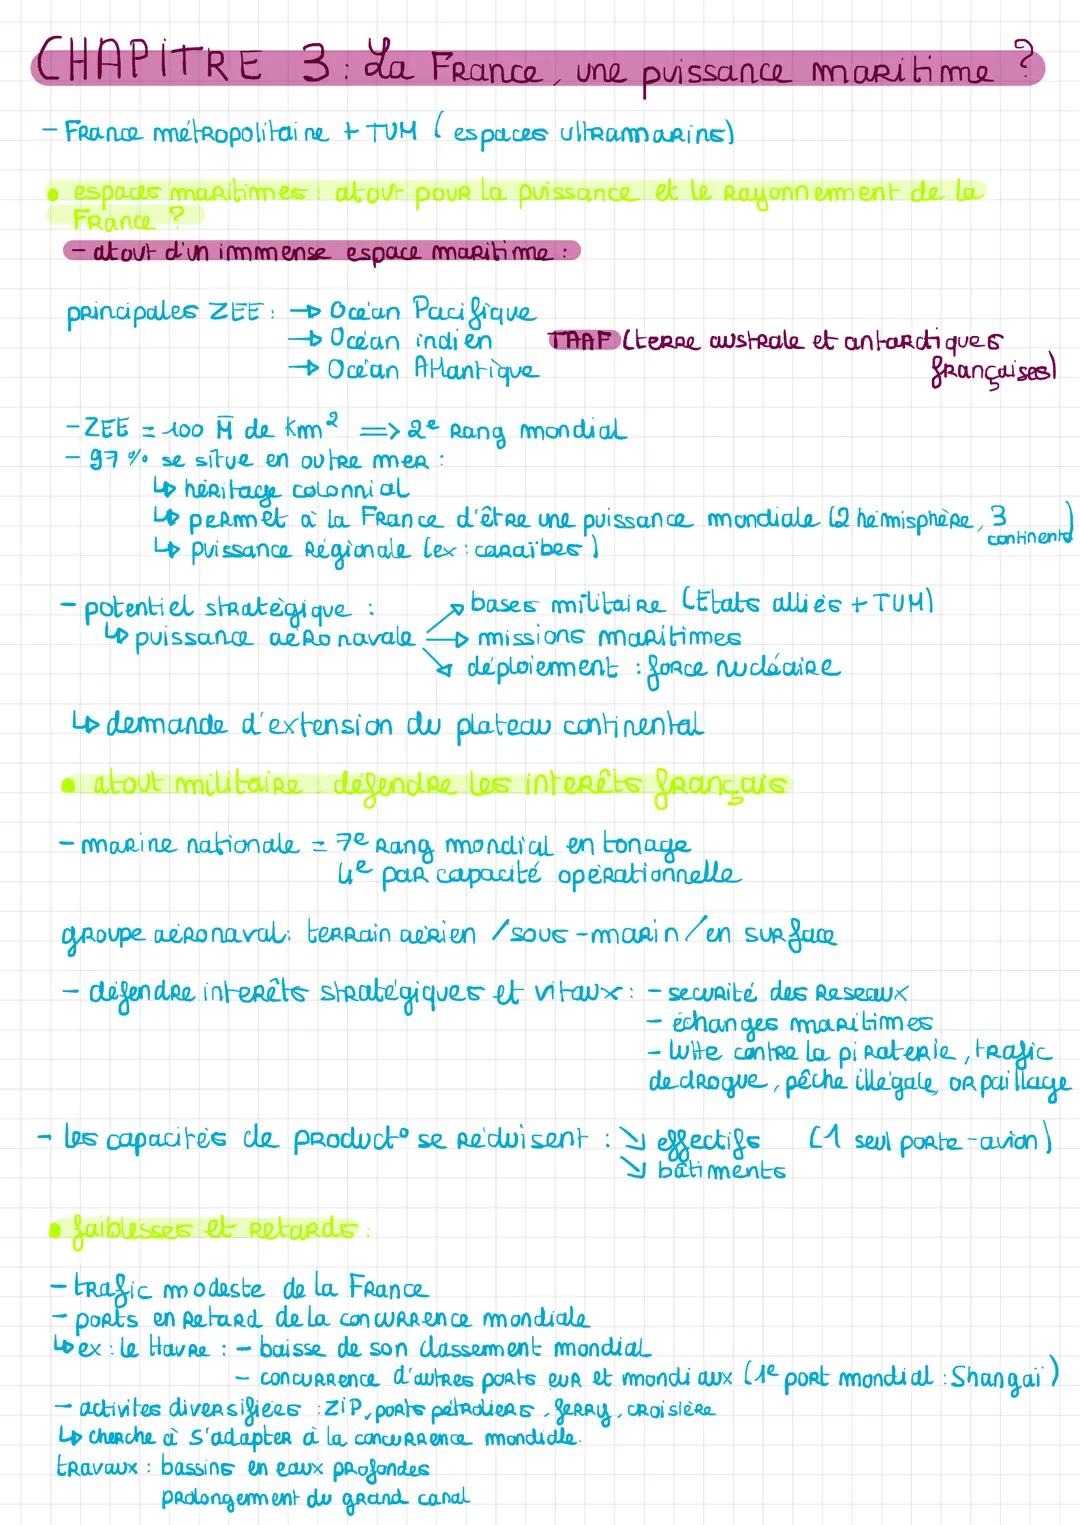 CHAPITRE 3 : La France, une puissance maritime ?
- France métropolitaine + TUM (espaces ultramarins)
• espaces maritimes : atout pour la puissance et le rayonnement de la
France ?
- atout d'un immense espace maritime :
principales ZEE : → Océan Pacifique
→ Océan indien
TAAF (terre australe et antarctiques
françaises)
→ Océan Atlantique
- ZEE = 100 M̅ de km² => 2e rang mondial
- 97 % se situe en outre mer :
↳ héritage colonnial
↳ permet à la France d'être une puissance mondiale (2 hémisphère, 3 continents)
↳ puissance régionale (ex : caraïbes)
- potentiel stratégique :
→ bases militaire (Etats alliés + TUM)
↳ puissance aéronavale → missions maritimes
↘ déploiement : force nucléaire
↳ demande d'extension du plateau continental
• atout militaire : défendre les interêts français
- marine nationale = 7e rang mondial en tonage
4e par capacité opérationnelle
groupe aéronaval : terrain aérien / sous-marin / en surface
- défendre interêts stratégiques et vitaux : - securité des reseaux
- échanges maritimes
- lutte contre la piraterie, trafic
de drogue, pêche illégale, orpaillage
- les capacités de product° se réduisent : ↘ effectifs (1 seul porte-avion)
↘ bâtiments
• faiblesses et retards :
- trafic modeste de la France
- ports en retard de la concurrence mondiale
↳ ex : le Havre : - baisse de son classement mondial
- concurrence d'autres ports eur et mondiaux (1e port mondial : Shangaï)
- activites diversifiées : ZIP, ports pétroliers, ferry, croisière
↳ cherche à s'adapter à la concurrence mondidle.
travaux : bassins en eaux profondes
prolongement du grand canal